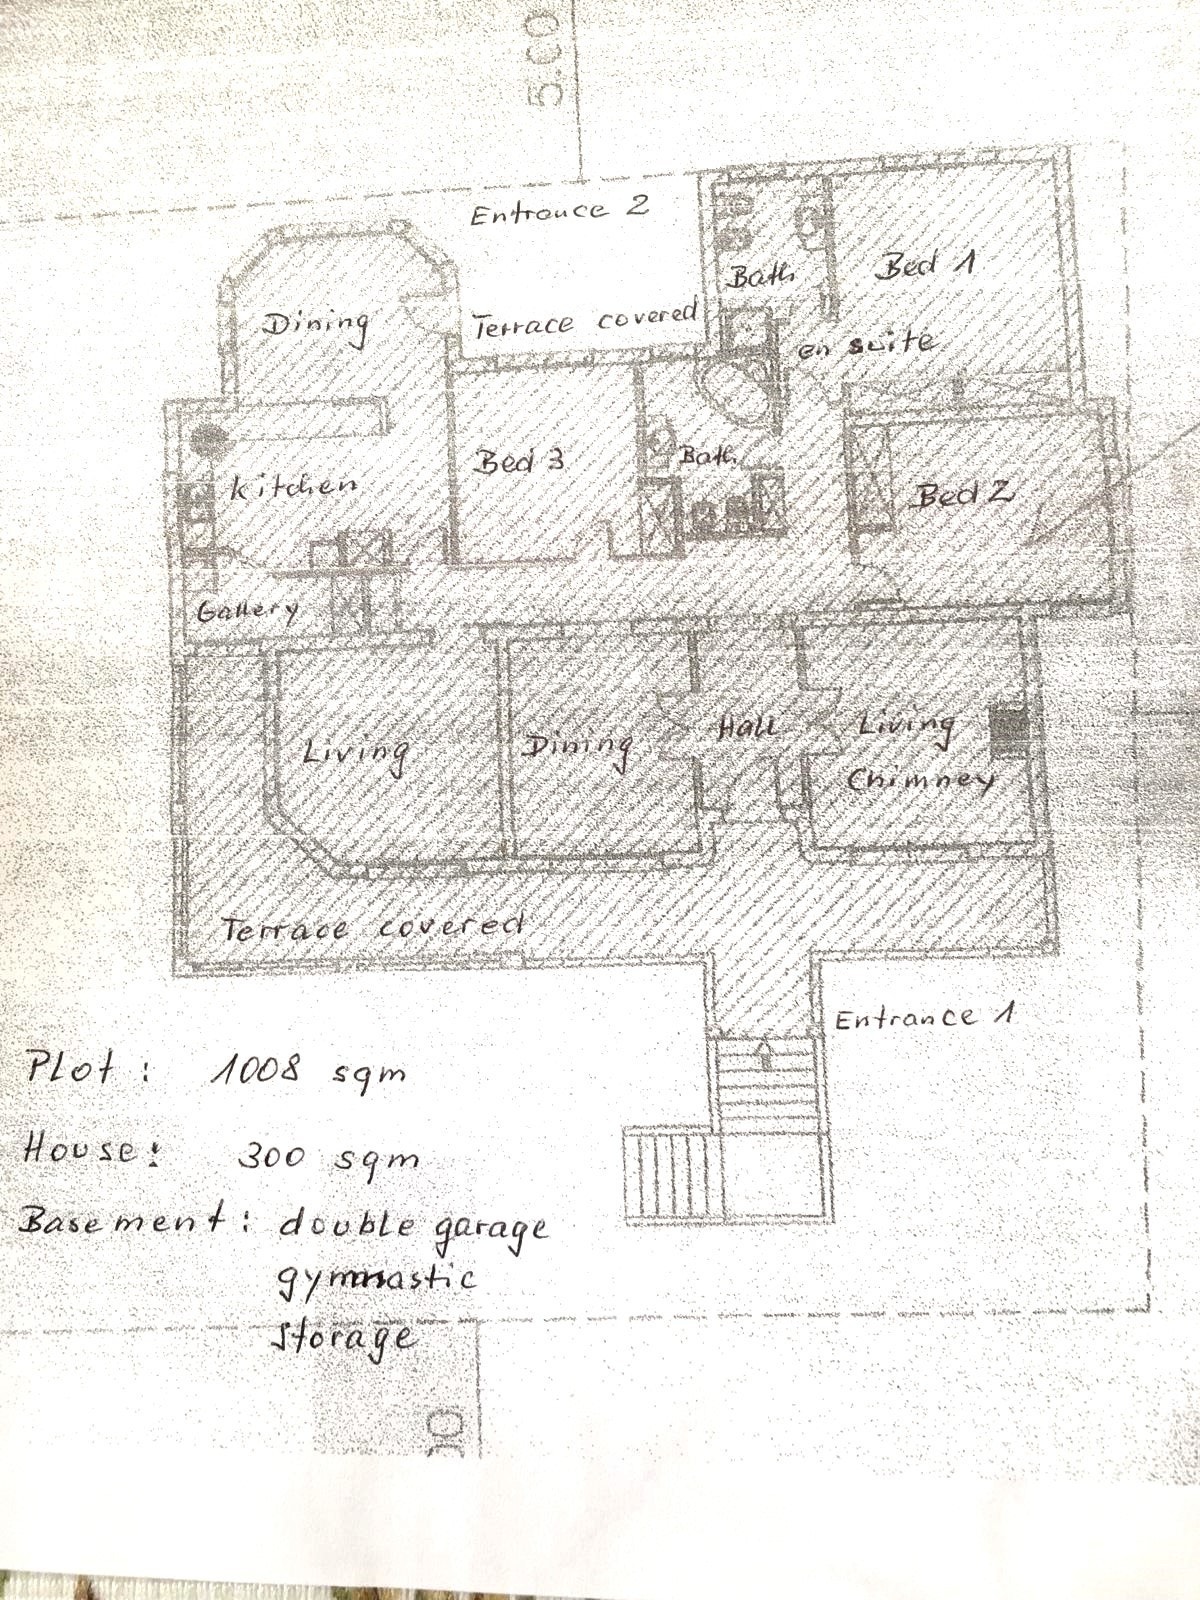 5.00
Entrance 2
Bath
Bed 1
Dining
Terrace covered
en suite
Bed 3
Bath
Kitchen
Bed 2
Gallery
Living
Dining
Hall
Living
Chimney
Terrace covered
Entrance 1
Plot : 1008 sqm
House: 300 sqm
Basement: double garage
gymnastic
storage